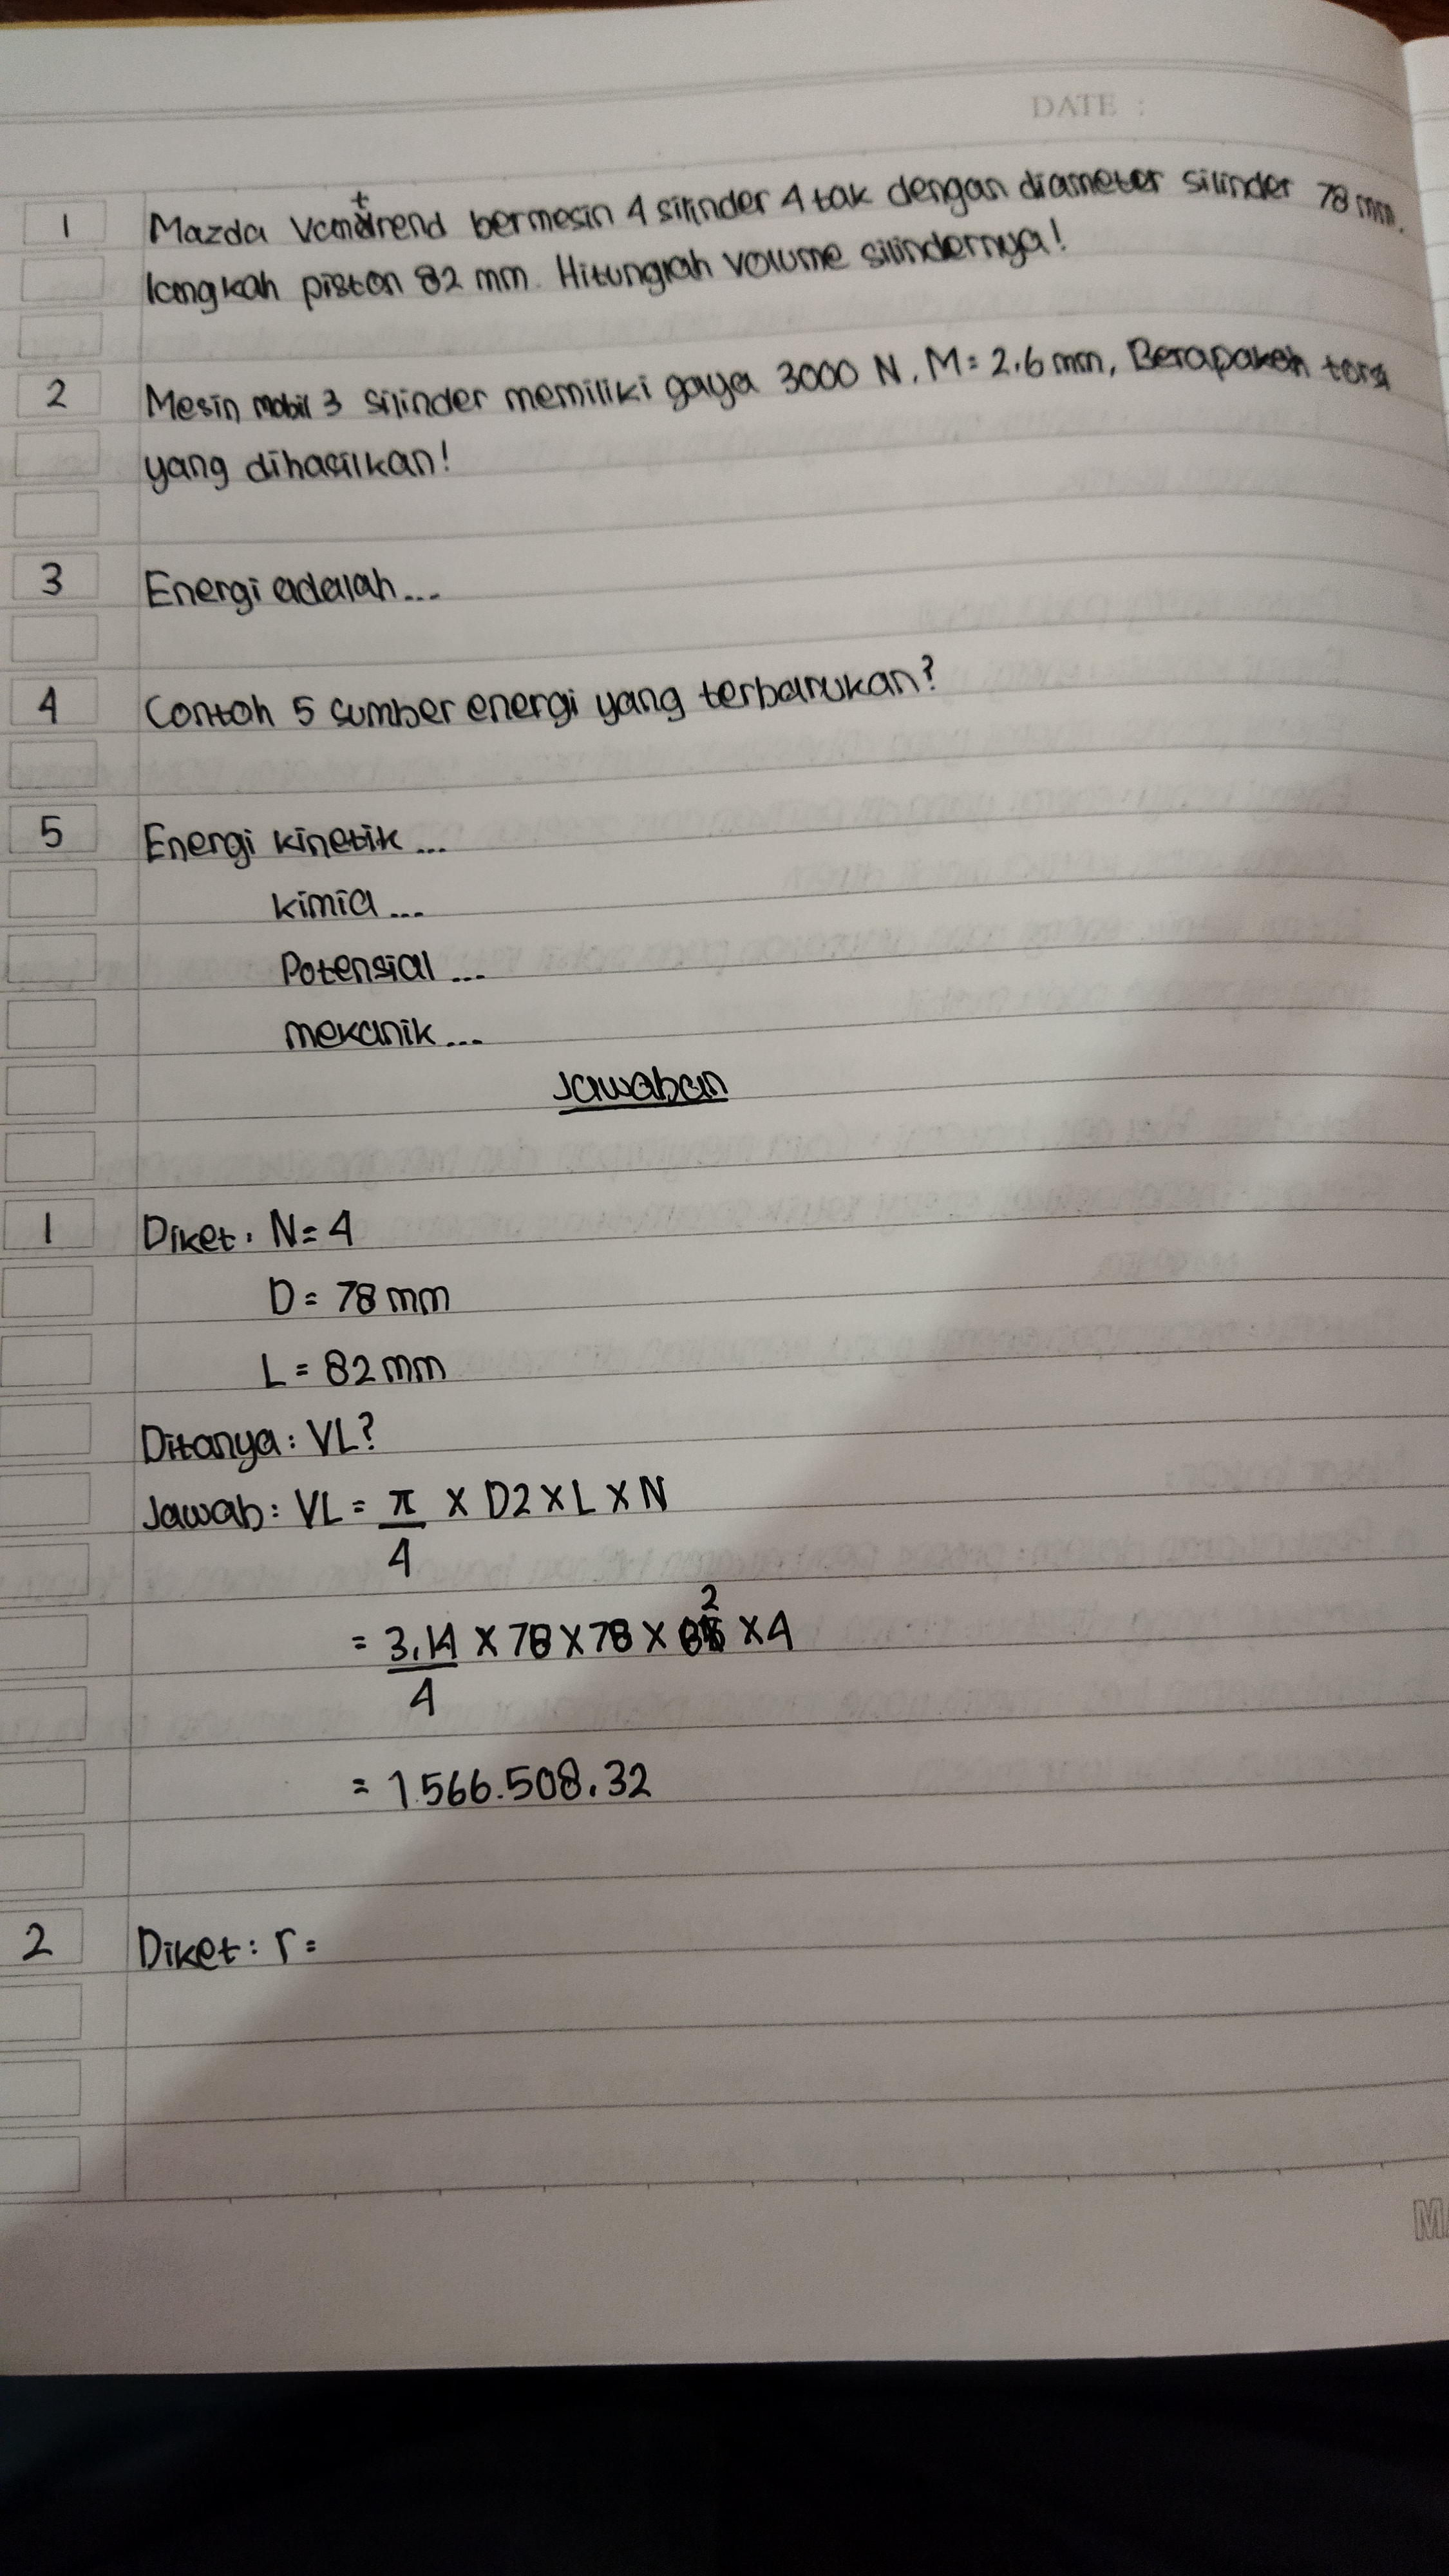 DATE :
1 Mazda Vantrend bermesin 4 silinder 4 tak dengan diameter silinder 78 mm.
langkah piston 82 mm. Hitunglah volume silindernya!
2 Mesin mobil 3 silinder memiliki gaya 3000 N. M = 2.6 mm, Berapakah torsi
yang dihasilkan!
3 Energi adalah...
4 Contoh 5 sumber energi yang terbarukan?
5 Energi kinetik ...
kimia ...
Potensial ...
mekanik ...
Jawaban
1 Diket. N = 4
D = 78 mm
L = 82 mm
Ditanya : VL?
Jawab : VL = π/4 × D2 × L × N
= 3.14/4 × 78 × 78 × 82 × 4
= 1.566.508.32
2 Diket : r =